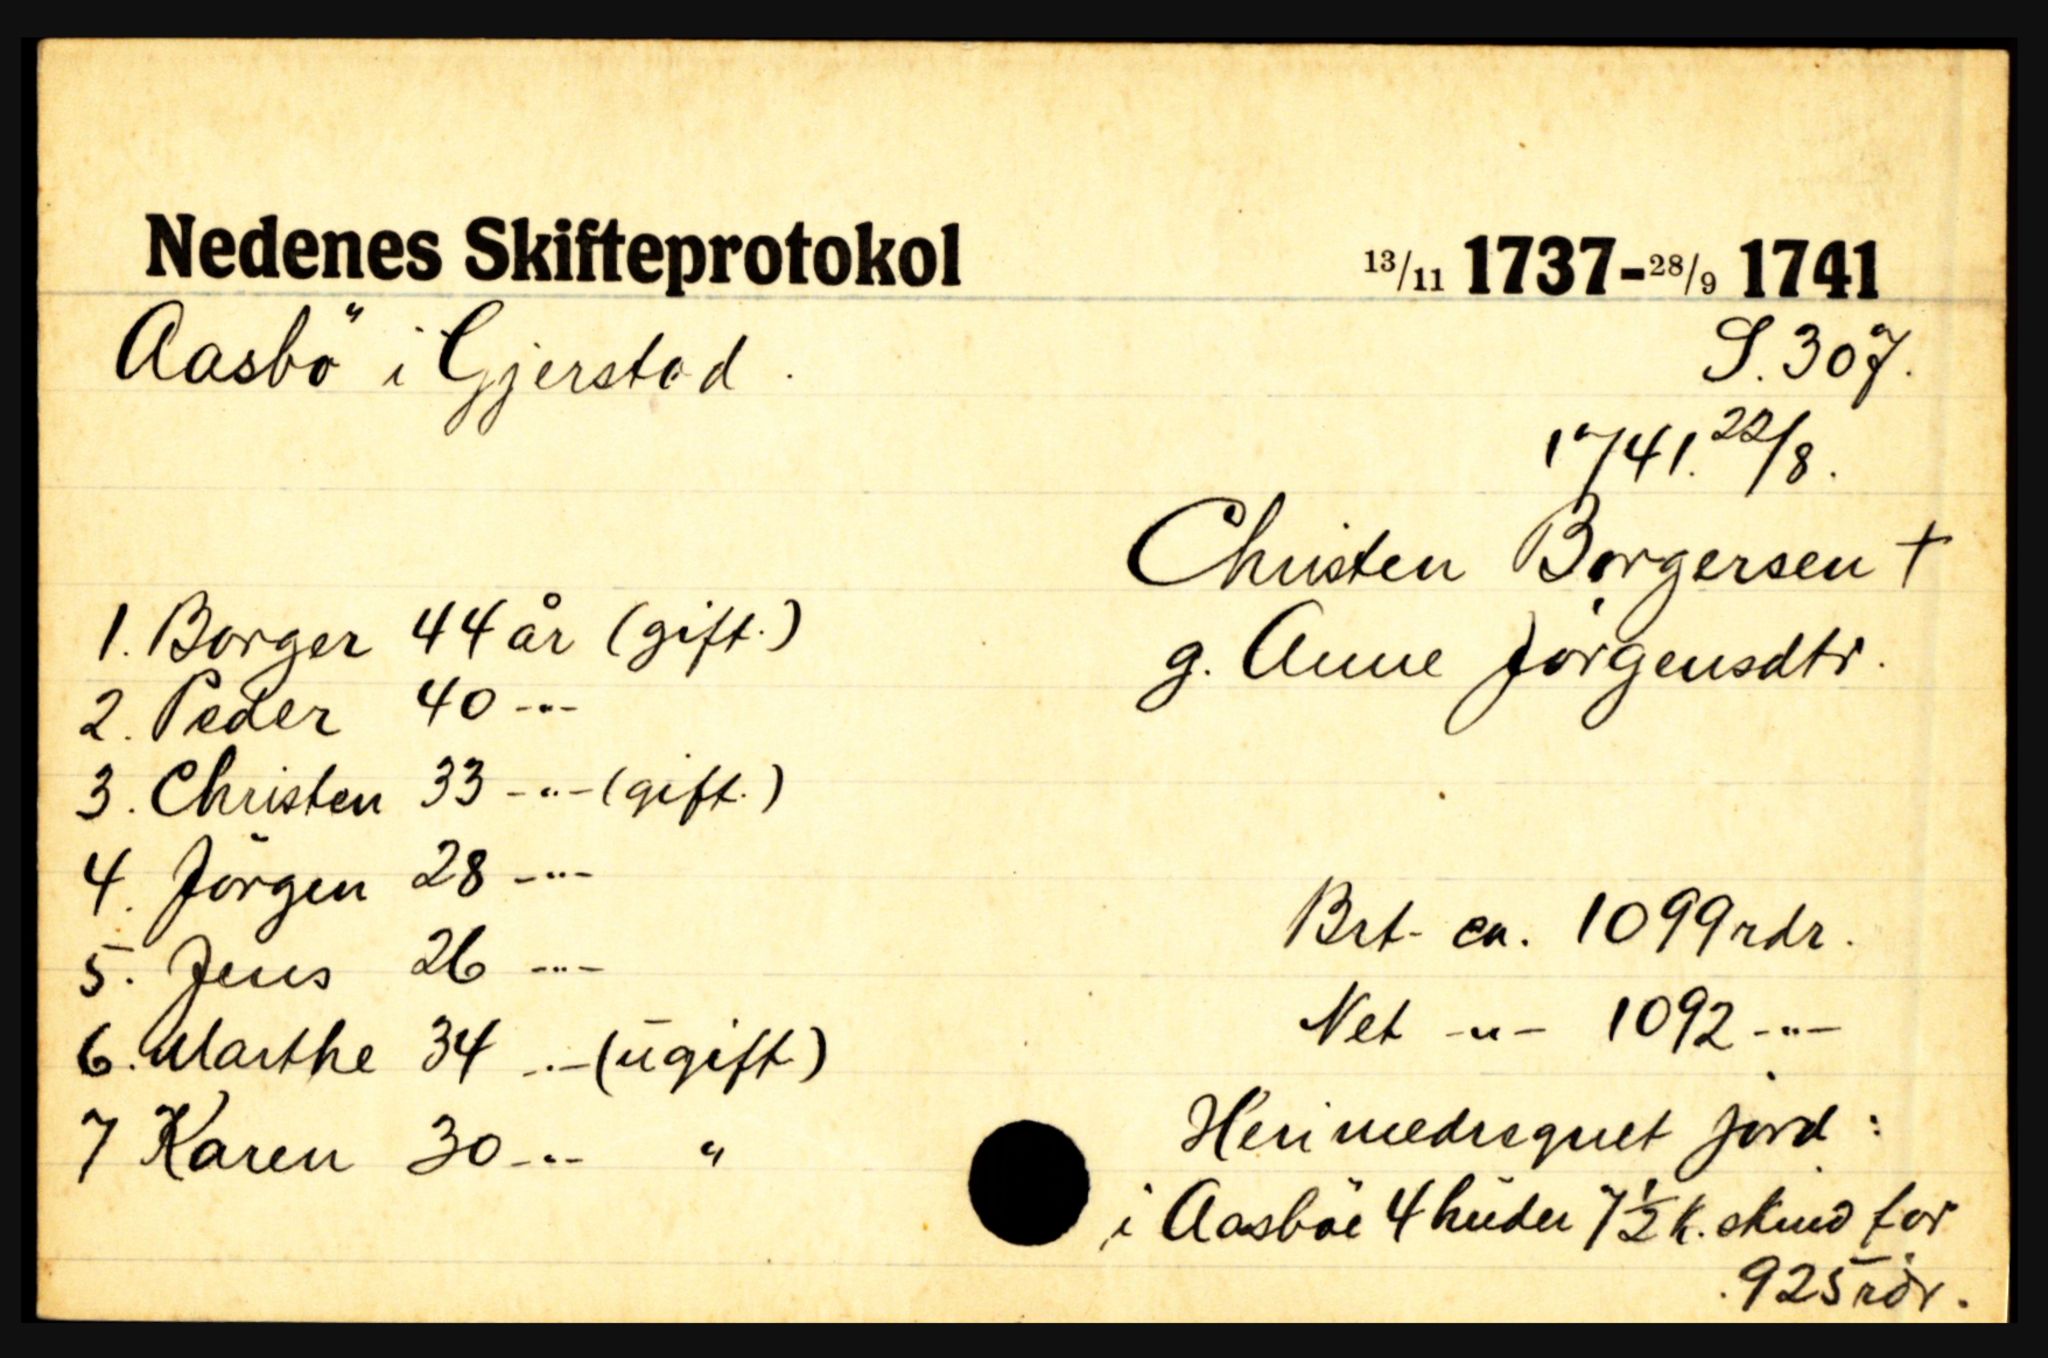 Nedenes Skifteprotokol 13/11 1737-28/9 1741
Aasbö i Gjerstad.
S. 307.
1741. 22/8.
Christen Borgersen +
g. Anne Jörgensdtr.
1. Borger 44 år (gift.)
2. Peder 40 -"-
3. Christen 33 -"- (gift.)
4. Jörgen 28 -"-
5. Jens 26 -"-
6. Marthe 34 -"- (ugift)
7 Karen 30 -"- "
Brt. ca. 1099 rdr.
Net -"- 1092 -"-
Heri medregnet jord:
i Aasböe 4 huder 7 1/2 k. skind for
925 rdr.